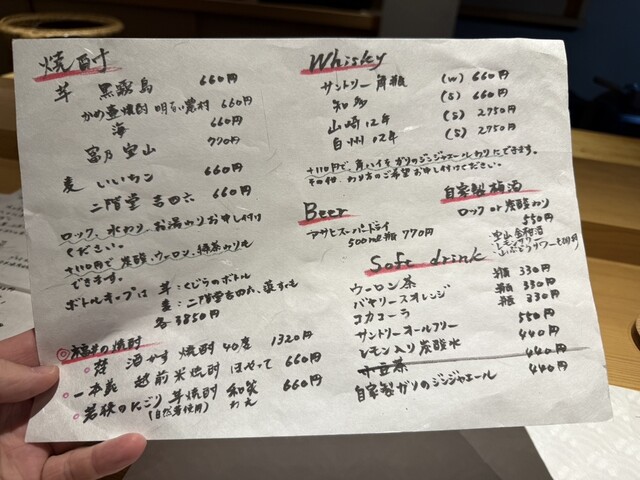 焼酎
芋 黒霧島 660円
かめ壷焼酎 明るい農村 660円
海 660円
富乃宝山 770円
麦 いいちこ 660円
二階堂 吉四六 660円
ロック、水わり、お湯わりお申し付け
ください。
+110円で、炭酸、ウーロン、緑茶わりも
できます。
ボトルキープは 芋:くじらのボトル
麦:二階堂吉四六
各3850円
福井の焼酎
酒かす焼酎 40度 1320円
一本義 越前米焼酎 ほやって 660円
若狭のにごり芋焼酎 和笑 660円
(自然薯使用) わえ
Whisky
サントリー 角瓶 (W) 660円
知多 (S) 660円
山崎12年 (S) 2750円
白州12年 (S) 2750円
+110円で、角ハイをガリのジンジャエールわりにできます。
その他、わり方のご希望お申し付けください。
自家製梅酒
ロック or 炭酸わり
550円
Beer
アサヒスーパードライ
500ml瓶 770円
Soft drink
ウーロン茶 瓶 330円
バヤリースオレンジ 瓶 330円
コカコーラ 瓶 330円
サントリーオールフリー 550円
レモン入り炭酸水 440円
440円
自家製ガリのジンジャエール 440円